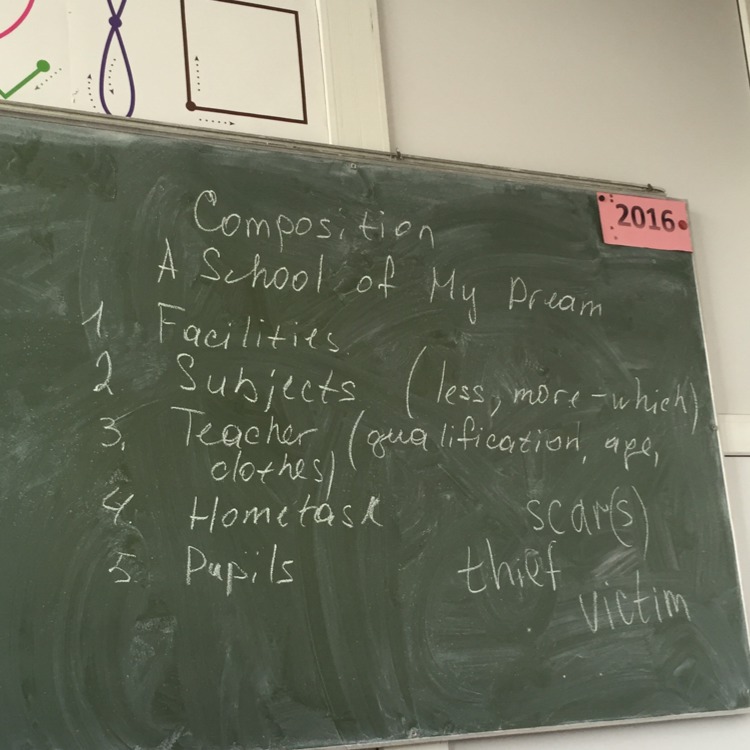 2016
Composition
A School of My Dream
1. Facilities
2 Subjects (less, more - which)
3. Teacher (qualification, age,
clothes)
4. Hometask
5. Pupils
scar(s)
thief
victim